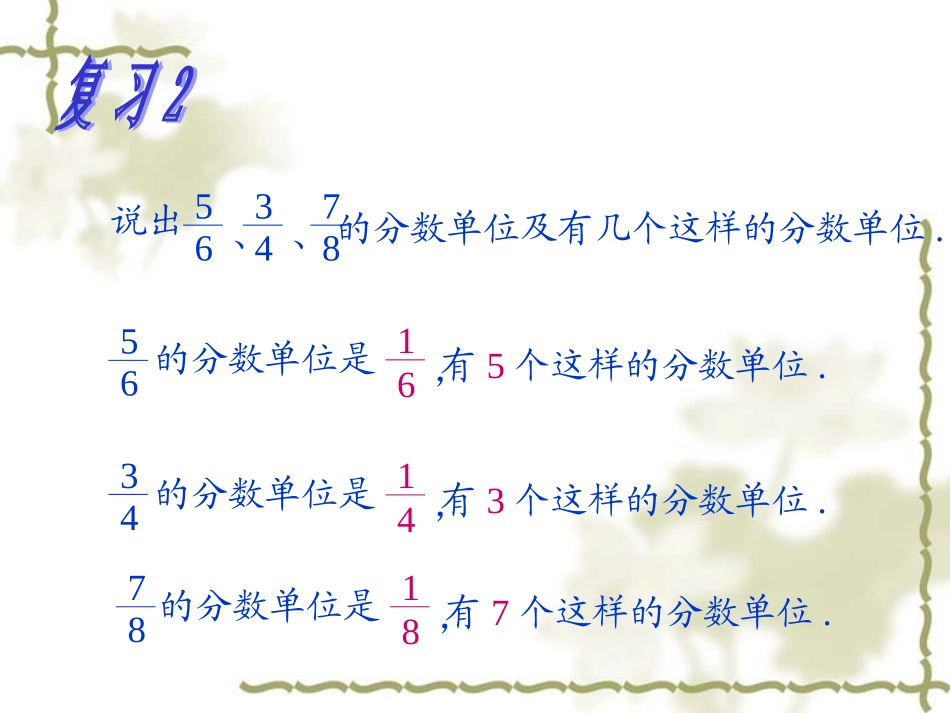 复习2
说出 5/6 、 3/4 、 7/8 的分数单位及有几个这样的分数单位 .
5/6 的分数单位是 1/6 ,有 5 个这样的分数单位 .
3/4 的分数单位是 1/4 ,有 3 个这样的分数单位 .
7/8 的分数单位是 1/8 ,有 7 个这样的分数单位 .